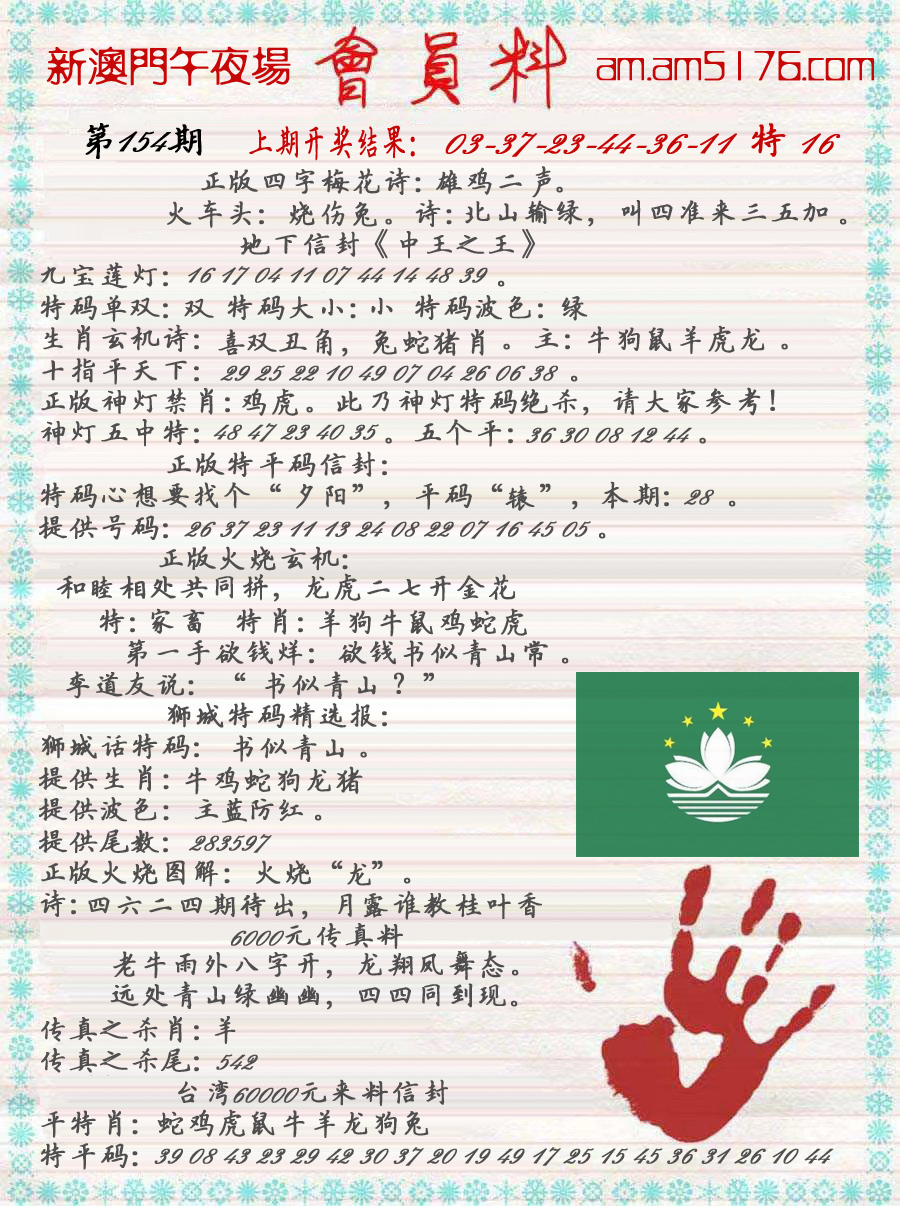 新澳門午夜場 會員料 am.am5176.com
第154期 上期开奖结果： 03-37-23-44-36-11 特 16
正版四字梅花诗：雄鸡二声。
火车头： 烧伤兔。诗：北山输绿，叫四准来三五加。
地下信封《中王之王》
九宝莲灯：16 17 04 11 07 44 14 48 39 。
特码单双：双 特码大小：小 特码波色：绿
生肖玄机诗：喜双丑角，兔蛇猪肖。主：牛狗鼠羊虎龙 。
十指平天下： 29 25 22 10 49 07 04 26 06 38 。
正版神灯禁肖：鸡虎。此乃神灯特码绝杀，请大家参考！
神灯五中特：48 47 23 40 35 。五个平：36 30 08 12 44 。
正版特平码信封：
特码心想要找个“夕阳”，平码“辕”，本期：28 。
提供号码：26 37 23 11 13 24 08 22 07 16 45 05 。
正版火烧玄机：
和睦相处共同拼，龙虎二七开金花
特：家畜 特肖：羊狗牛鼠鸡蛇虎
第一手欲钱烊： 欲钱书似青山常 。
李道友说： “ 书似青山 ？”
狮城特码精选报：
狮城话特码： 书似青山 。
提供生肖：牛鸡蛇狗龙猪
提供波色： 主蓝防红 。
提供尾数： 283597
正版火烧图解： 火烧“龙” 。
诗：四六二四期待出，月露谁教桂叶香
6000元传真料
老牛雨外八字开，龙翔凤舞态。
远处青山绿幽幽，四四同到现。
传真之杀肖：羊
传真之杀尾：542
台湾60000元来料信封
平特肖：蛇鸡虎鼠牛羊龙狗兔
特平码：39 08 43 23 29 42 30 37 20 19 49 17 25 15 45 36 31 26 10 44